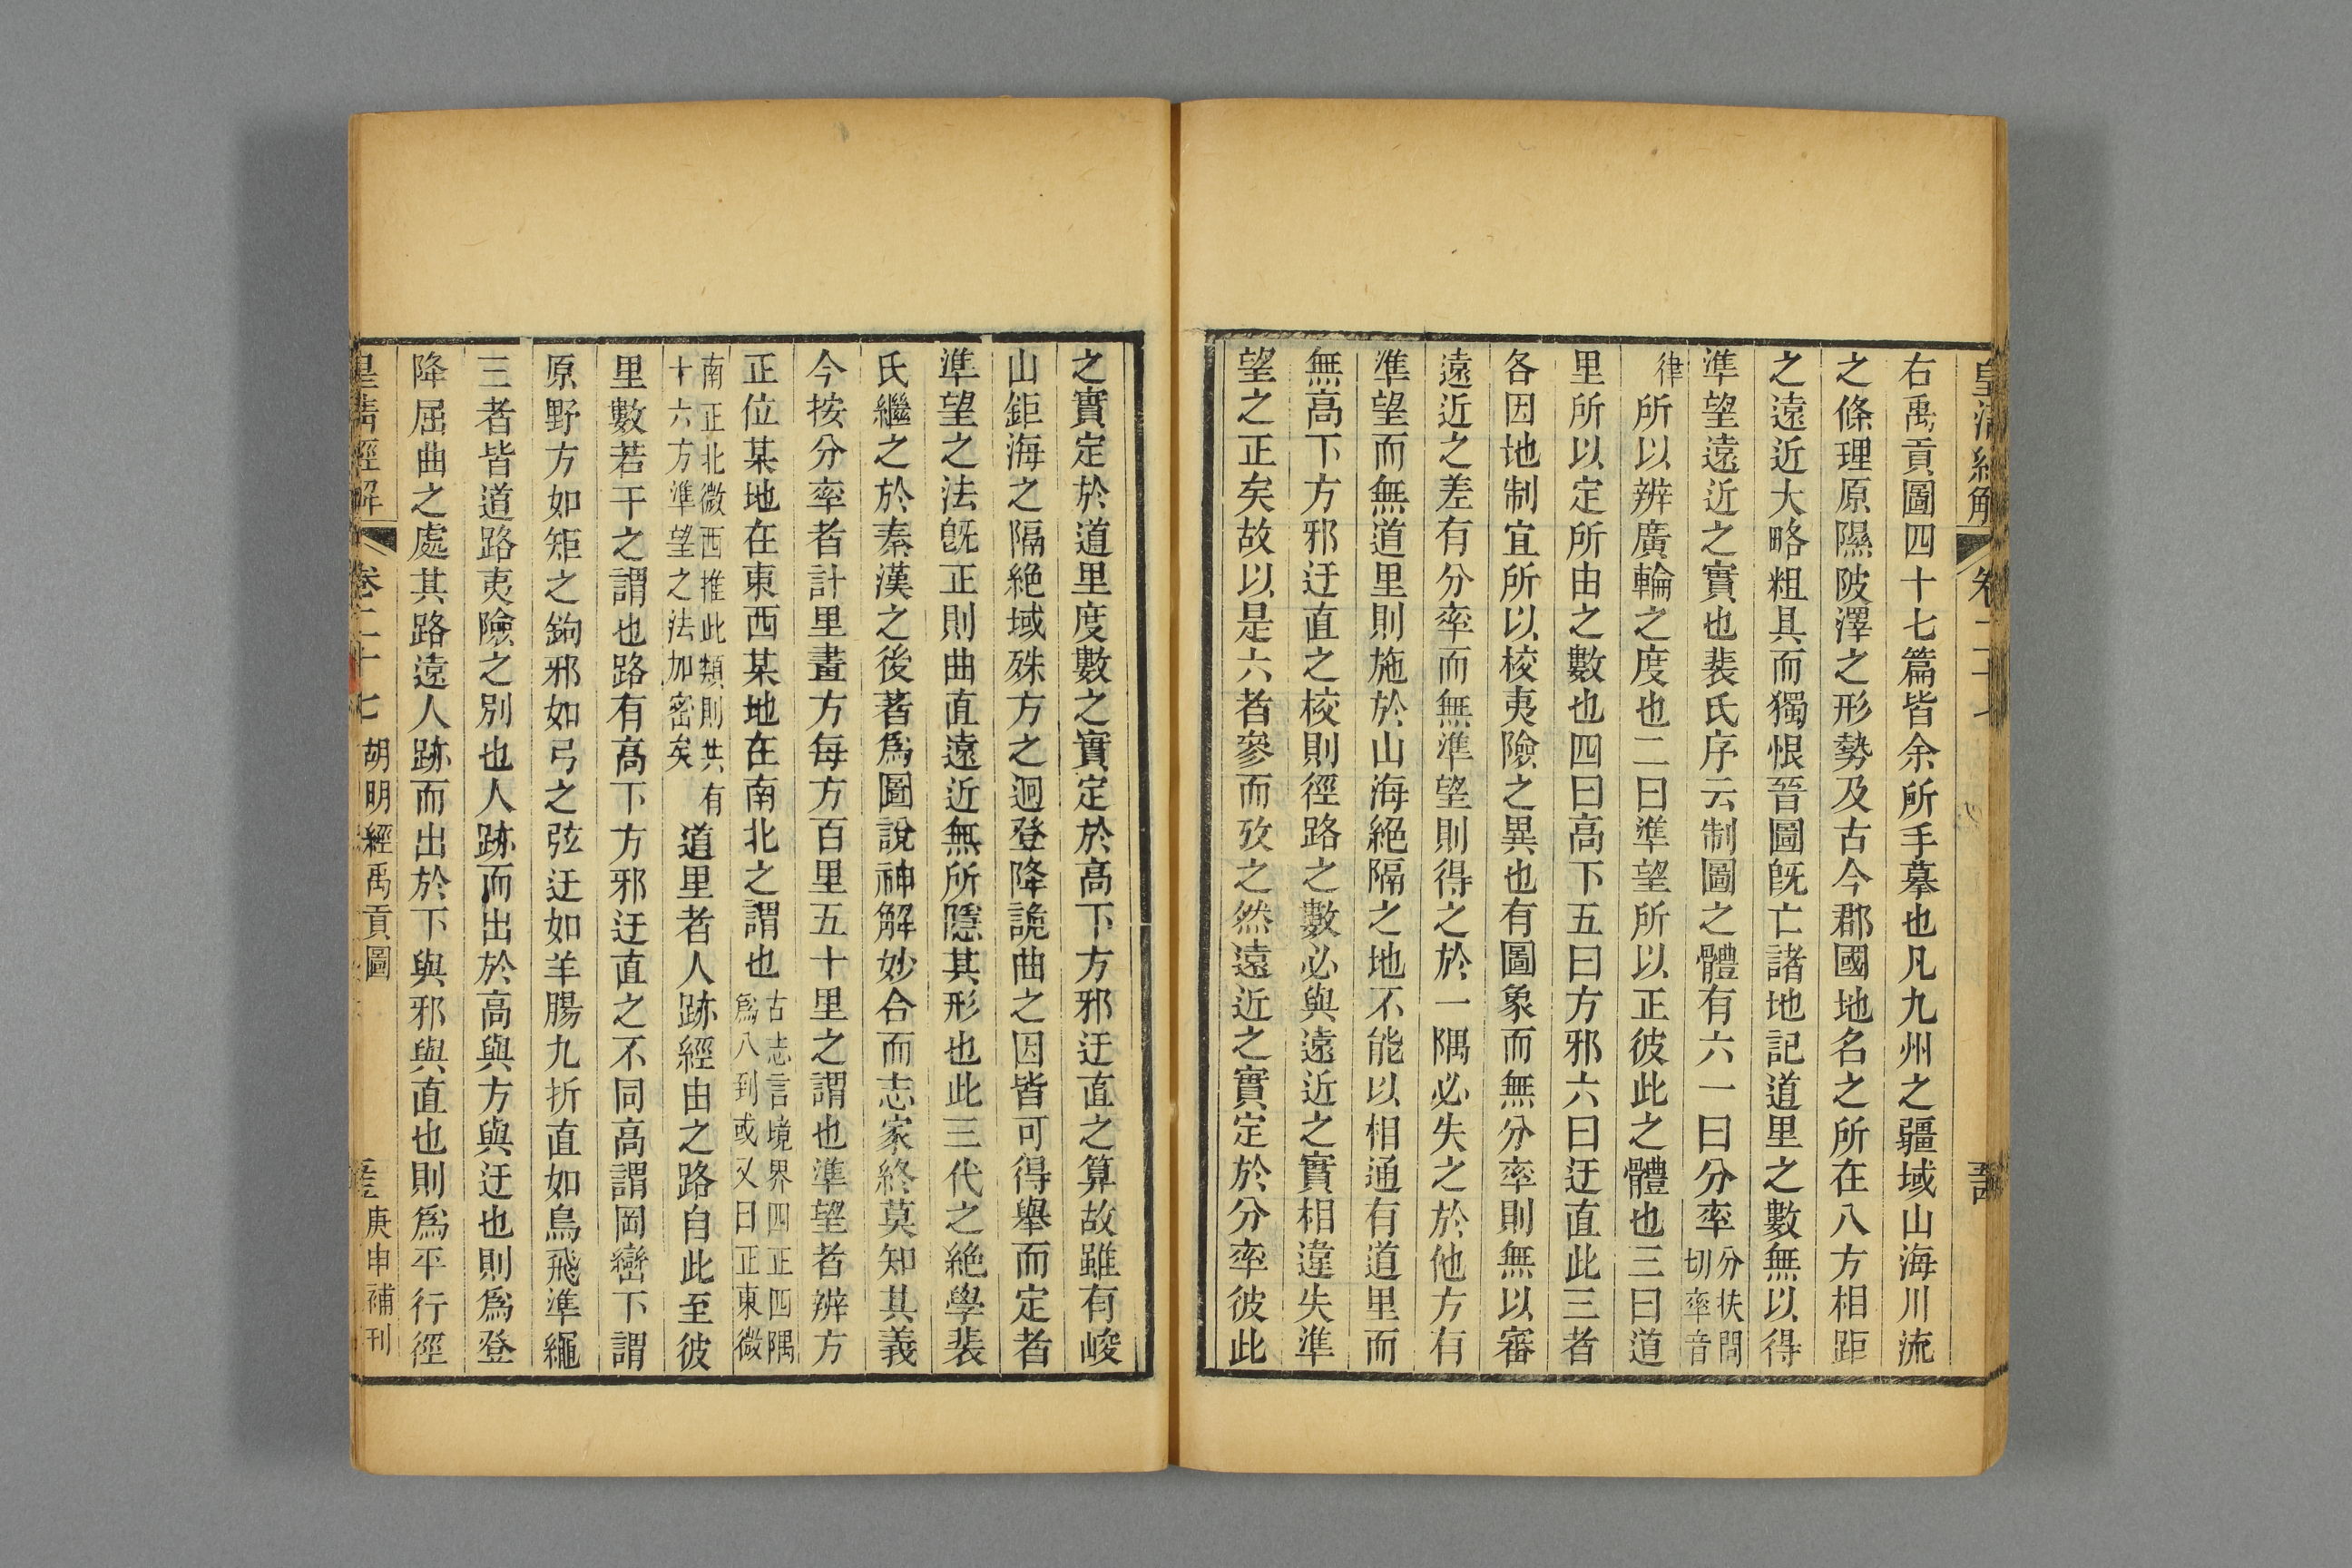 皇清經解
卷二十七
右禹貢圖四十七篇皆余所手摹也凡九州之疆域山海川流
之條理原隰陂澤之形勢及古今郡國地名之所在八方相距
之遠近大略粗具而獨恨晉圖旣亡諸地記道里之數無以得
準望遠近之實也裴氏序云制圖之體有六一曰分率分扶問切率音
律所以辨廣輪之度也二曰準望所以正彼此之體也三曰道
里所以定所由之數也四曰高下五曰方邪六曰迂直此三者
各因地制宜所以校夷險之異也有圖象而無分率則無以審
遠近之差有分率而無準望則得之於一隅必失之於他方有
準望而無道里則施於山海絕隔之地不能以相通有道里而
無高下方邪迂直之校則徑路之數必與遠近之實相違失準
望之正矣故以是六者參而攷之然遠近之實定於分率彼此
之實定於道里度數之實定於高下方邪迂直之算故雖有峻
山鉅海之隔絕域殊方之迥登降詭曲之因皆可得舉而定者
準望之法旣正則曲直遠近無所隱其形也此三代之絕學裴
氏繼之於秦漢之後著爲圖說神解妙合而志家終莫知其義
今按分率者計里畫方每方百里五十里之謂也準望者辨方
正位某地在東西某地在南北之謂也古志言境界四正四隅爲八到或又曰正東微
南正北微西推此類則共有十六方準望之法加密矣道里者人跡經由之路自此至彼
里數若干之謂也路有高下方邪迂直之不同高謂岡巒下謂
原野方如矩之鉤邪如弓之弦迂如羊腸九折直如鳥飛準繩
三者皆道路夷險之別也人跡而出於高與方與迂也則爲登
降屈曲之處其路遠人跡而出於下與邪與直也則爲平行徑
皇清經解
卷二十七
胡明經禹貢圖
庚申補刊